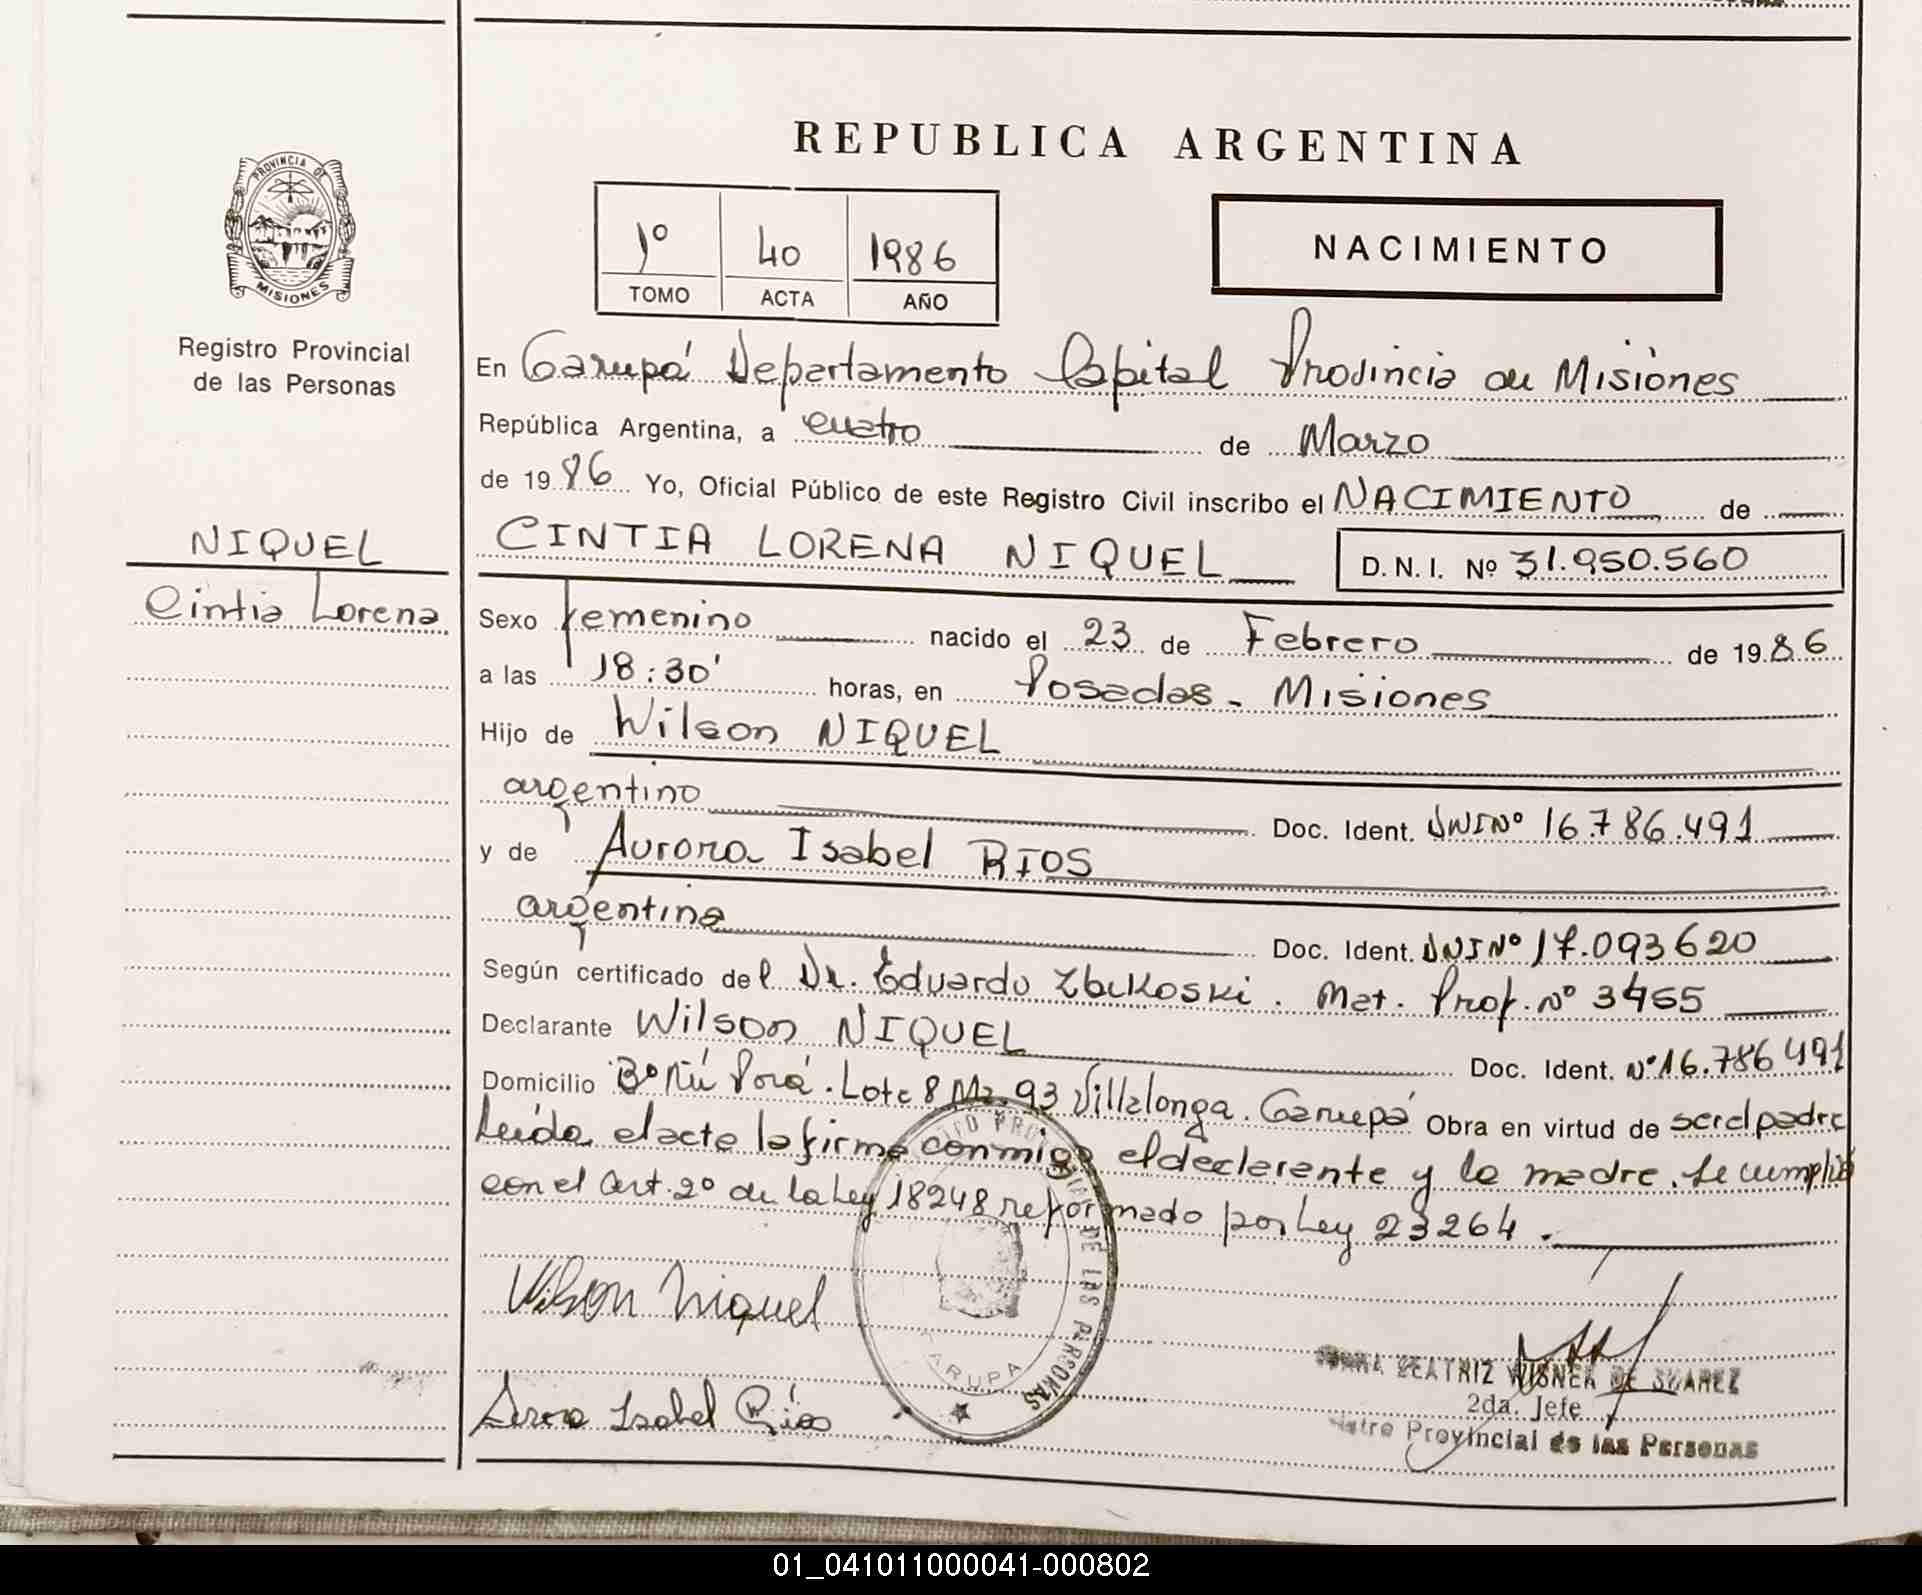 REPUBLICA ARGENTINA
PROVINCIA DE
MISIONES
Registro Provincial
de las Personas
1º 40 1986
TOMO ACTA AÑO
NACIMIENTO
En Garupá Departamento Capital Provincia de Misiones
República Argentina, a cuatro de Marzo
de 1986 Yo, Oficial Público de este Registro Civil inscribo el NACIMIENTO de
NIQUEL
Cintia Lorena
CINTIA LORENA NIQUEL D.N.I. Nº 31.950.560
Sexo femenino nacido el 23 de Febrero de 1986
a las 18:30' horas, en Posadas - Misiones
Hijo de Wilson NIQUEL
argentino Doc. Ident. DNI Nº 16.786.491
y de Aurora Isabel RIOS
argentina Doc. Ident. DNI Nº 17.093620
Según certificado del Dr. Eduardo Mat. Prof. Nº 3465
Declarante Wilson NIQUEL Doc. Ident. Nº 16.786491
Domicilio Bº Ñú Porá. Lote 8 Mz. 93 Villalonga. Garupá Obra en virtud de ser el padre
Leída el acta la firma conmigo el declarante y la madre. Se cumplió
con el Art. 2º de la Ley 18248 reformado por Ley 23264.
Wilson Niquel
Isabel Ríos
PROVINCIAL DE LAS PERSONAS
GARUPA
BEATRIZ WISNER DE SUAREZ
2da. Jefe
Provincial de las Personas
01_041011000041-000802